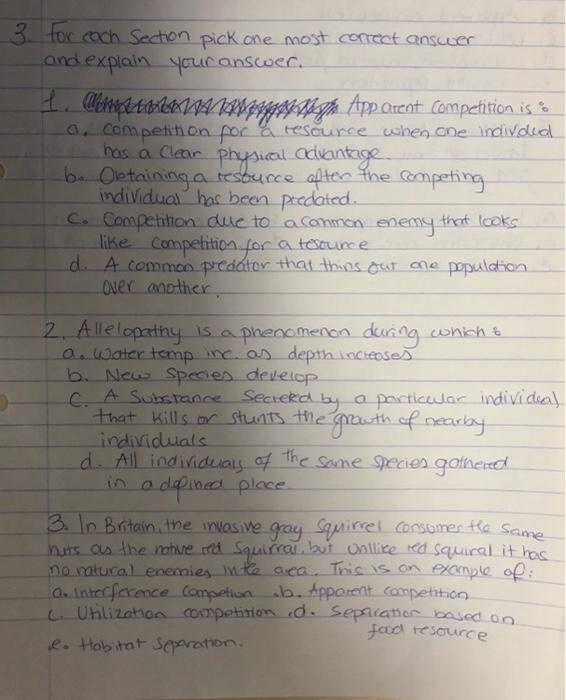 3. For each Section pick one most correct answer
and explain your answer.
1. Apparent Competition is :
a. Competition for a resource when one individual
has a clear physical advantage.
b. Obtaining a resource after the competing
individual has been predated.
c. Competition due to a common enemy that looks
like competition for a resource
d. A common predator that thins out one population
over another.
2. Allelopathy is a phenomenon during which :
a. Water temp inc. as depth increases
b. New Species develop
c. A Substance Secreted by a particular individual
that kills or stunts the growth of nearby
individuals
d. All individuals of the same species gathered
in a defined place.
3. In Britain, the invasive gray squirrel consumes the same
nuts as the native red squirral, but unlike red squiral it has
no natural enemies in the area. This is an example of:
a. Interference Competion .b. Apparent competition
c. Utilization competition .d. Separation based on
food resource
e. Habitat Separation.